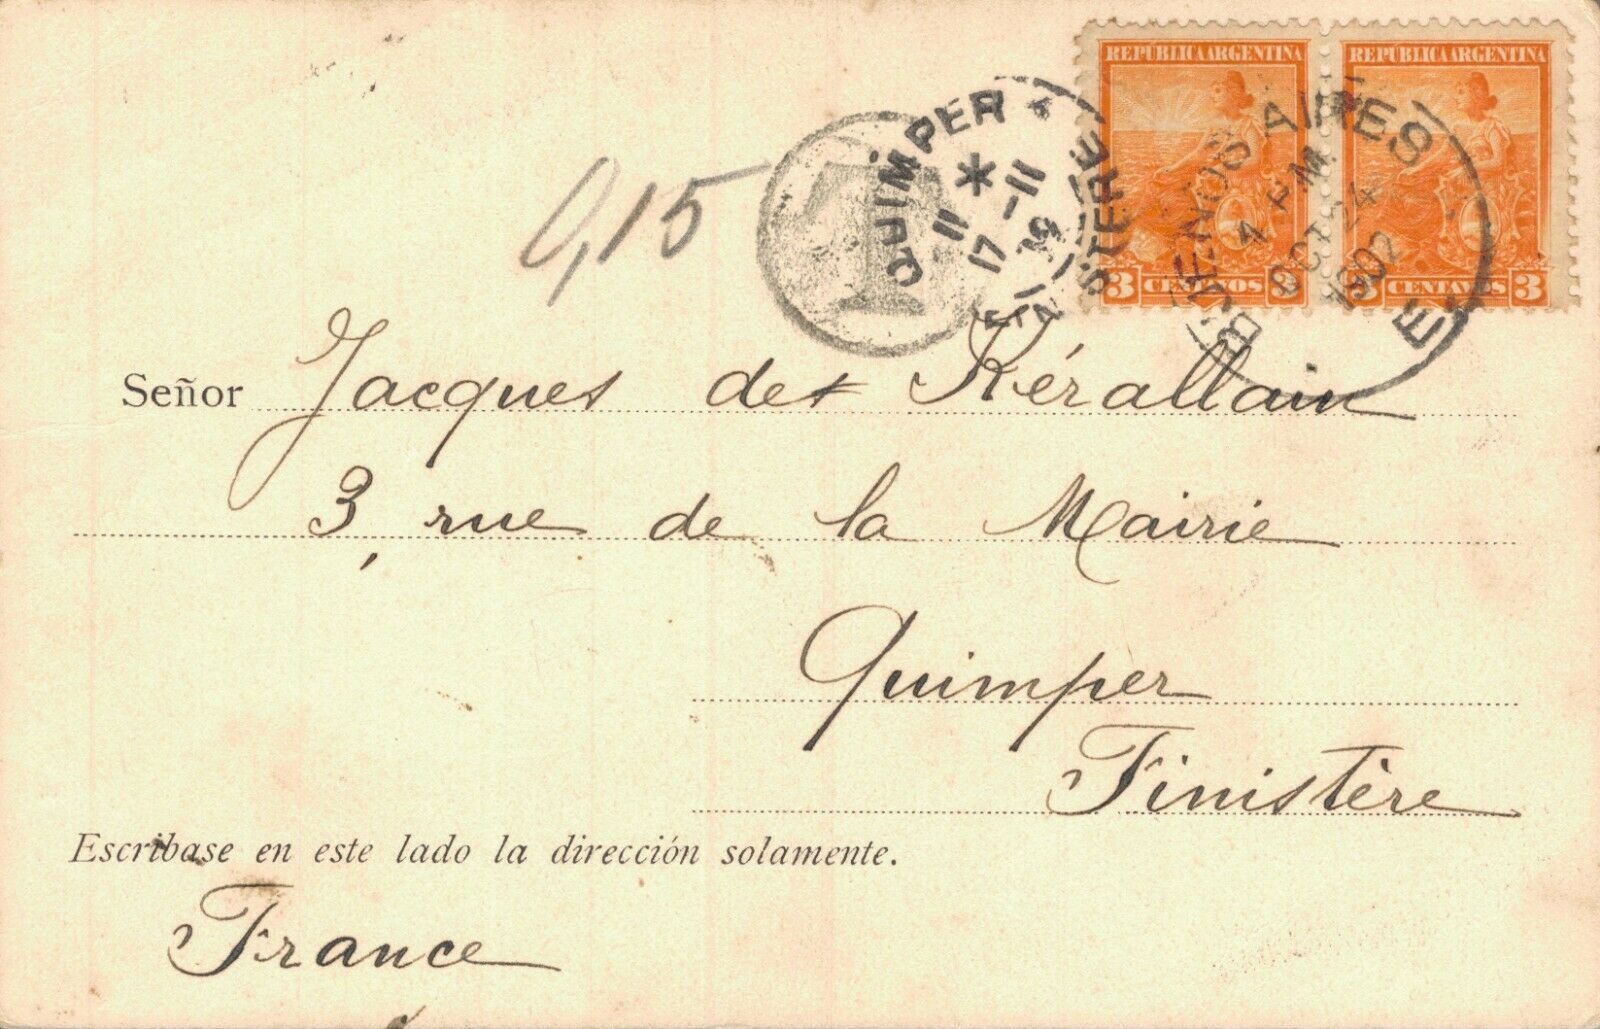 REPÚBLICA ARGENTINA REPÚBLICA ARGENTINA
3 CENTAVOS 3 3 CENTAVOS 3
BUENOS AIRES
4 PM
OCT 24
1902
E.
QUIMPER
*
11
17 -11
FINISTERE
T
0,15
Señor Jacques de Kérallain
3, rue de la Mairie
Quimper
Finistère
Escríbase en este lado la dirección solamente.
France